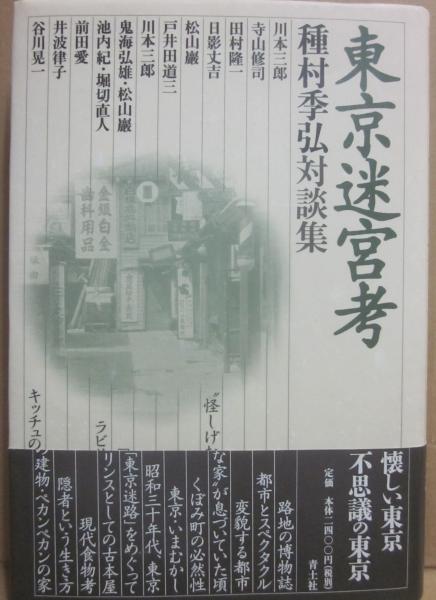 東京迷宮考
種村季弘対談集
川本三郎
寺山修司
田村隆一
日影丈吉
松山巖
戸井田道三
川本三郎
鬼海弘雄・松山巖
池内紀・堀切直人
前田愛
井波律子
谷川晃一
金銀白金
歯科用品
懐しい東京
不思議の東京
定価 本体二四〇〇円(税別)
青土社
路地の博物誌
都市とスペクタクル
変貌する都市
“怪しげな家”が息づいていた頃
くぼみ町の必然性
東京いまむかし
昭和三十年代、東京
「東京迷路」をめぐって
ラビリンスとしての古本屋
現代食物考
隠者という生き方
キッチュの建物・ペカンペカンの家